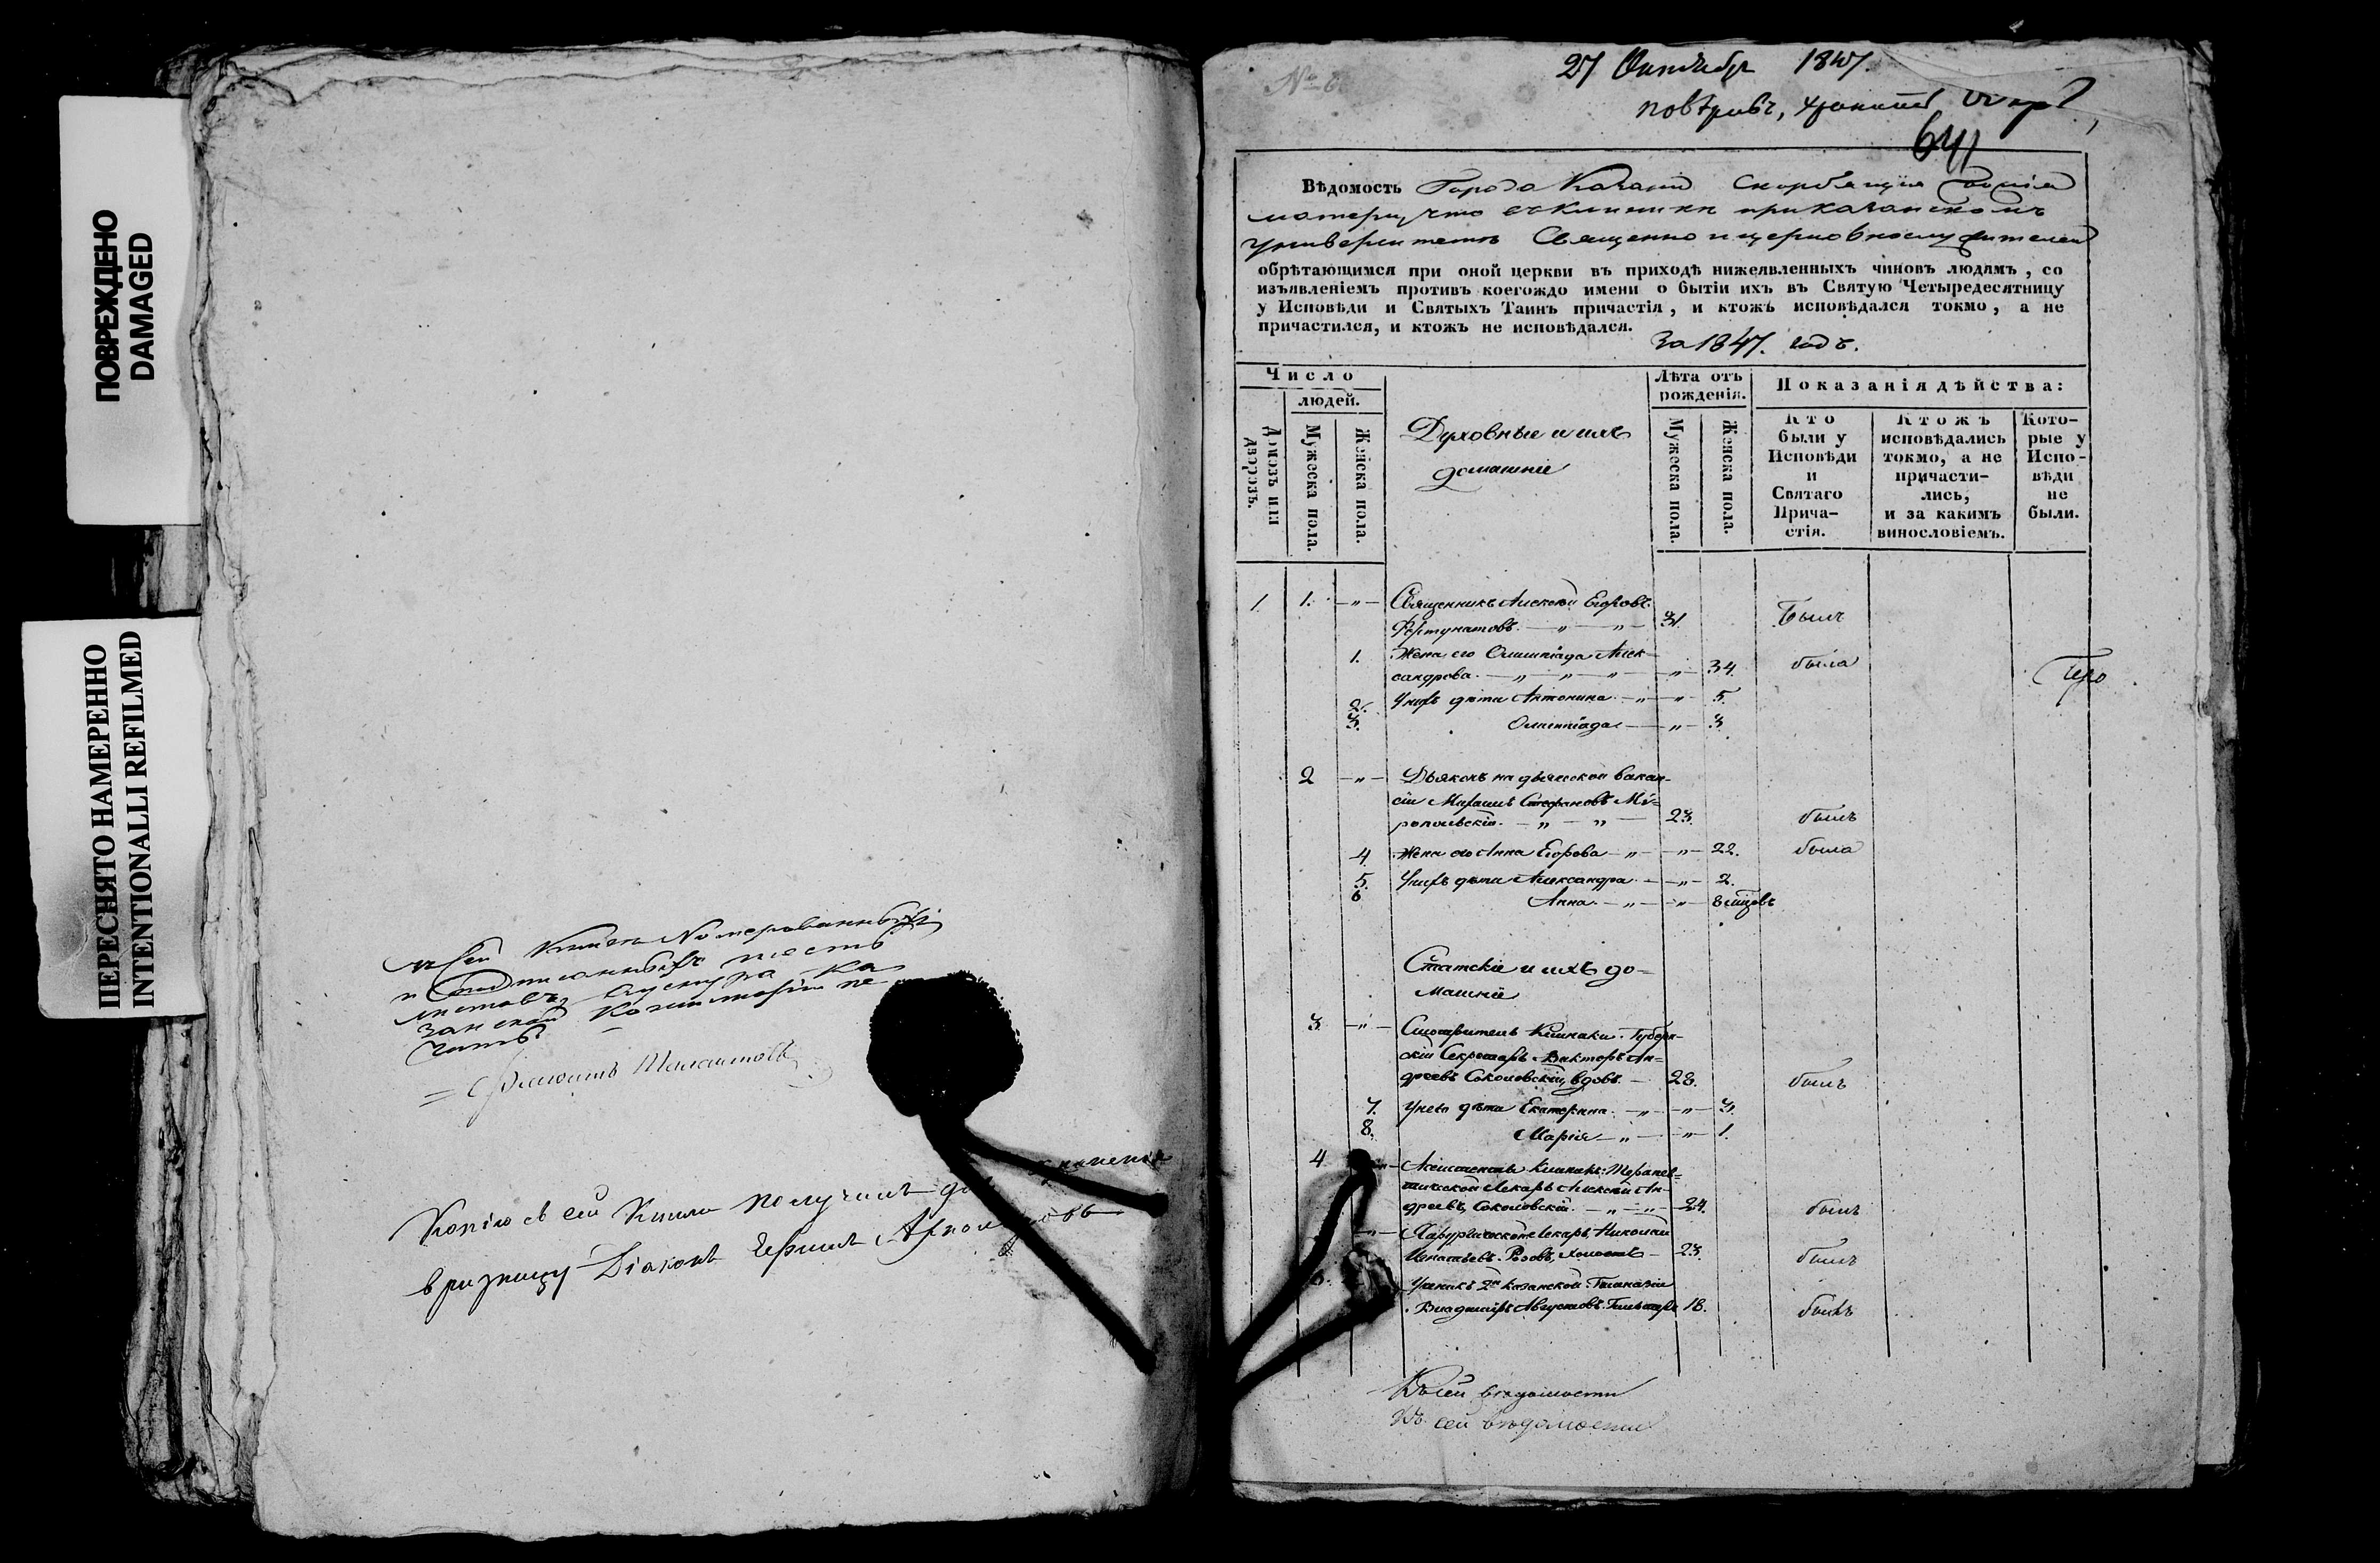 ПОВРЕЖДЕНО
DAMAGED
ПЕРЕСНЯТО НАМЕРЕННО
INTENTIONALLI REFILMED
въ сей книгѣ Номерованныхъ
и
листовъ Ка
занской Консисторіи пе
чать.
Копію съ сей книги получилъ для храненія
в ризницу Діаконъ
27 Октября 1847.
641
Вѣдомость Города Казани Скорбящія Божія
матери, что въ клиникѣ при казанскомъ
университетѣ Священно и церковнослужителей
обрѣтающимся при оной церкви въ приходѣ нижеявленныхъ чиновъ людямъ, со
изъявленіемъ противъ коегождо имени о бытіи ихъ въ Святую Четыредесятницу
у Исповѣди и Святыхъ Таинъ причастія, и ктожъ исповѣдался токмо, а не
причастился, и ктожъ не исповѣдался.
За 1847. годъ.
Число
людей.
Домовъ или дворовъ.
Мужеска пола.
Женска пола.
Духовные и ихъ
домашніе
Лѣта отъ
рожденія.
Мужеска пола.
Женска пола.
Показанія дѣйства:
Кто
были у
Исповѣди
и
Святаго
Прича-
стія.
Ктожъ
исповѣдались
токмо, а не
причасти-
лись,
и за какимъ
винословіемъ.
Кото-
рые у
Испо-
вѣди
не
были.
1. 1. —„— Священникъ Алексѣй Егоровъ
Фортунатовъ. —„—„— 31. Былъ
1. Жена его Олимпіада Алек-
сандрова. —„—„—„— —„— 34. была
2. У нихъ дѣти Антонина —„— „— 5.
3. Олимпіада — —„— 3.
2 —„— Дьяконъ на дьяческой вакан-
сіи Михаилъ Стефановъ Ми-
ропольскій. —„—„— 23. былъ
4. Жена его Анна Егорова —„— —„— 22. была
5. У нихъ дѣти Александра — —„— 2.
6 Анна. —„— —„— 8 мѣсцовъ
Статскіе и ихъ до-
машніе
3. —„— Смотритель Клиники. Губерн-
скій Секретарь Викторъ Ан-
дреевъ Соколовскій, вдовъ. — 28. былъ
7. У него дѣти Екатерина. —„— —„— 3.
8. Марія —„— —„— 1.
4 —„— Ассистентъ Клиники: Терапев-
тической Лекарь Алексѣй Ан-
дреевъ Соколовскій. —„—„— 24. былъ
—„— Хирургической Лекарь, Николай
Игнатьевъ Розовъ, холостъ — 23. былъ
6. Ученикъ 2й Казанской Гимназіи
Владиміръ Августовъ 18. былъ
Къ сей вѣдомости
Къ сей вѣдомости